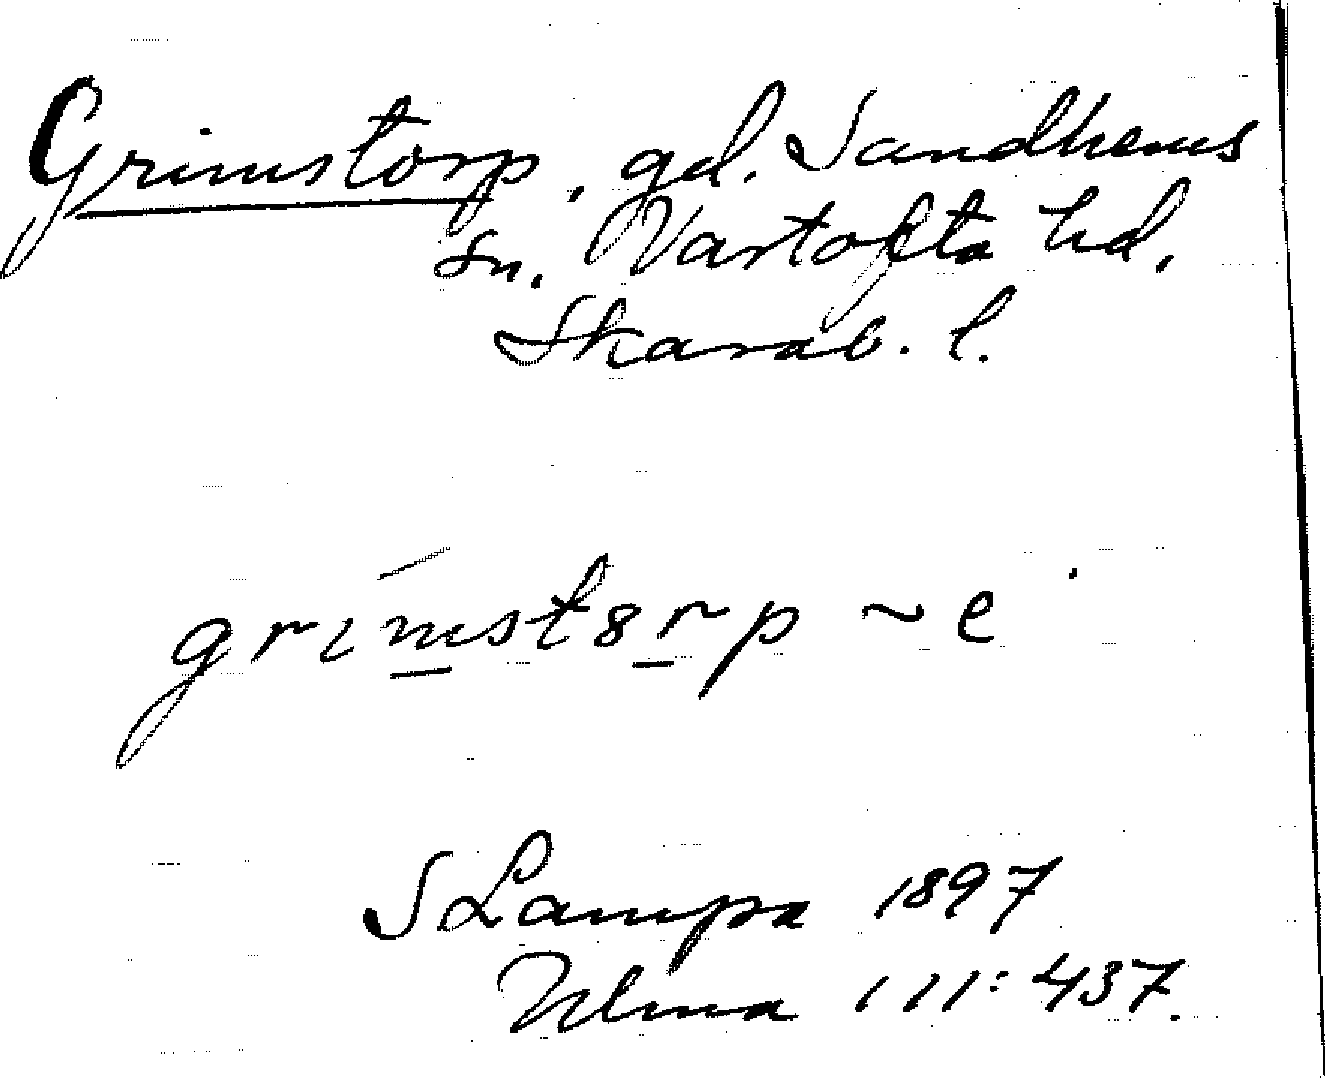 Grimstorp, gd. Sandhems
sn. Vartofta hd,
Skarab. l.
grimstorp ~ e
S Lampa 1897
111: 437.